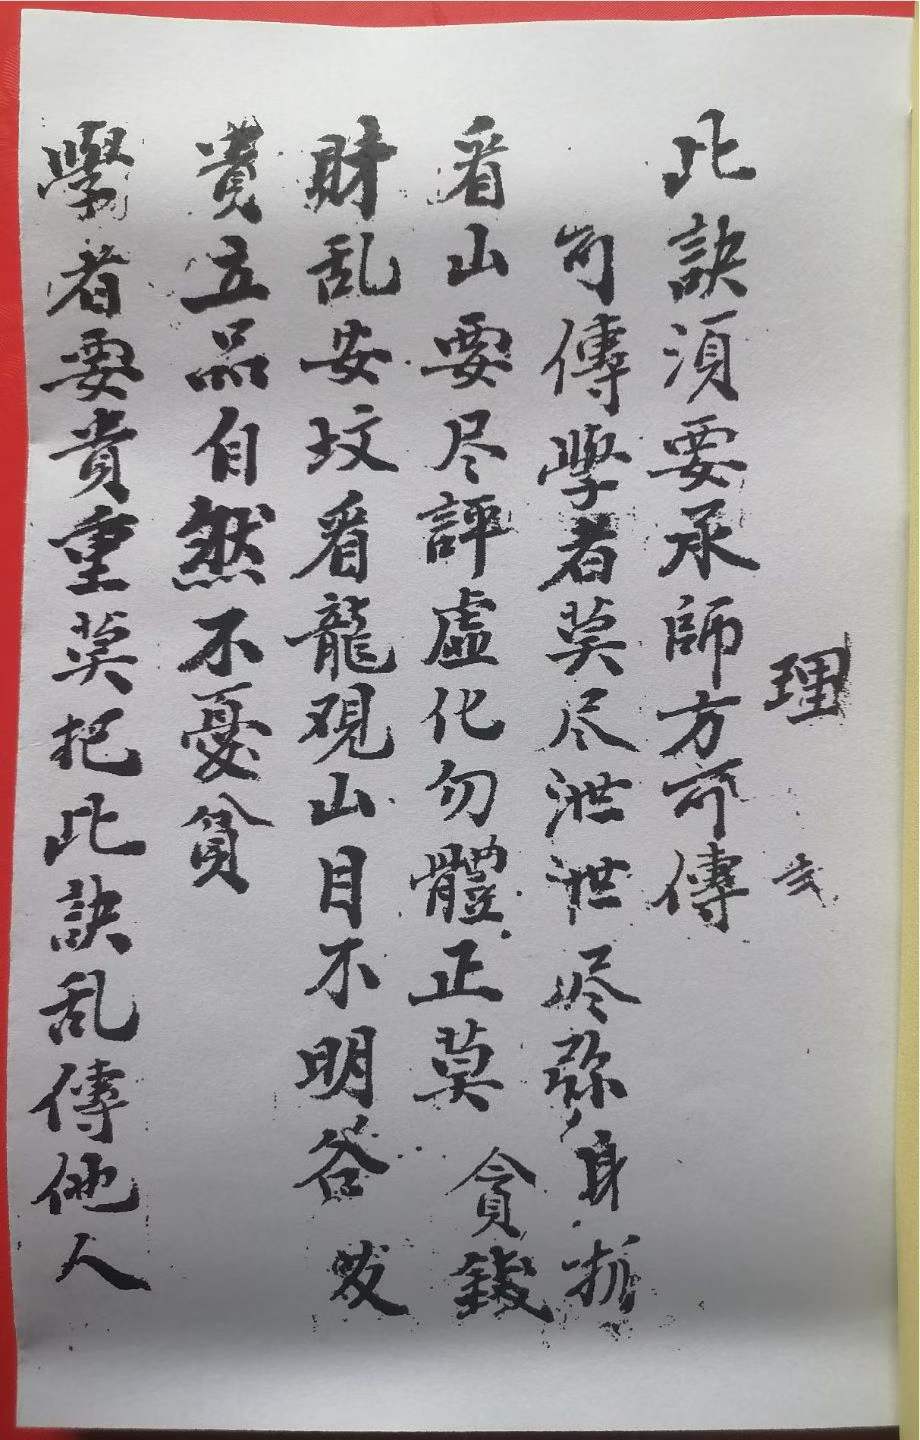 理
此訣須要承師方可傳
可傳學者莫尽泄泄尽弥身
看山要尽評虛化勿體正莫貪錢
財乱安坟看龍观山目不明
貴立品自然不憂貧
學者要貴重莫把此訣乱傳他人